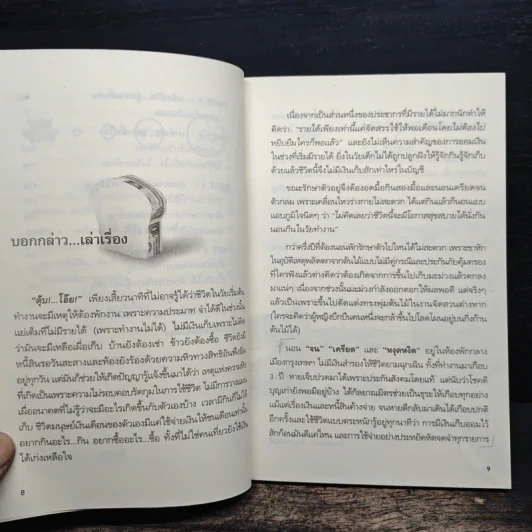 บอกกล่าว...เล่าเรื่อง
"ตุ้บ!...โอ๊ย!" เพียงเสี้ยวนาทีที่ไม่อาจรู้ได้ว่าชีวิตในวัยเริ่มต้น
ทำงานจะมีเหตุให้ต้องพักงาน เพราะความประมาท จำได้ดีในช่วงนั้น
แย่เต็มที่ไม่มีรายได้ (เพราะทำงานไม่ได้) ไม่มีเงินเก็บเพราะไม่คิด
ว่ามันจะมีเหลือเผื่อเก็บ บ้านยังต้องเช่า ข้าวยังต้องซื้อ ชีวิตยังมี
หนี้สินรอวันสะสางและท้องยังร้องด้วยความหิวทวงสิทธิอันพึงมี
อยู่ทุกวัน แต่มันก็ช่วยให้เกิดปัญญารู้แจ้งขึ้นมาได้ว่า เหตุแห่งความทุกข์
ที่เกิดเป็นเพราะความไม่รอบคอบรัดกุมในการใช้ชีวิต ไม่มีการวางแผน
เผื่ออนาคตที่ไม่รู้ว่าจะมีอะไรเกิดขึ้นกับตัวเองบ้าง เวลามีกินก็ไม่ได้
เก็บ ชีวิตมนุษย์เงินเดือนของตัวเองมีแต่ใช้จ่ายเงินให้ชนเดือนเท่านั้น
อยากกินอะไร...กิน อยากซื้ออะไร...ซื้อ ทั้งที่ไม่ใช่คนเที่ยวยังใช้เงิน
ได้เก่งเหลือใจ
8
เนื่องจากเป็นส่วนหนึ่งของประชากรที่มีรายได้ไม่มากนักทำให้
คิดว่า "รายได้เพียงเท่านี้แค่จัดสรรใช้ให้พอเดือนโดยไม่ต้องไป
หยิบยืมใครก็พอแล้ว" และยังไม่เห็นความสำคัญของการออมเงิน
ในช่วงที่เริ่มมีรายได้ ยิ่งในวัยเด็กไม่ได้ถูกปลูกฝังให้รู้จักกินรู้จักเก็บ
ด้วยแล้วชีวิตนี้จึงไม่มีเงินเก็บสักเท่าไหร่ในบัญชี
ขณะรักษาตัวอยู่จึงต้องอดมื้อกินสองมื้อและนอนเครียดจน
ตัวกลม เพราะเคลื่อนไหวร่างกายไม่สะดวก ได้แต่กินแล้วก็นอนแบบ
แอบภูมิใจนิดๆ ว่า "ไม่คิดเลยว่าชีวิตนี้จะมีโอกาสสุขสบายได้นั่งกิน
นอนกินในวัยทำงาน"
กว่าครึ่งปีที่ต้องนอนพักรักษาตัวไปไหนได้ไม่สะดวก เพราะขาหัก
ในอุบัติเหตุพลัดตกจากต้นไม้แบบไม่มีคู่กรณีและประกันภัยคุ้มครอง
ที่ใครฟังแล้วต่างคิดว่าต้องเกิดจากการขึ้นไปเก็บมะม่วงแล้วตกลง
มาแน่ๆ เนื่องจากช่วงนั้นมะม่วงกำลังออกดอกให้ผลพอดี แต่จริงๆ
แล้วเป็นเพราะขึ้นไปติดแต่งทรงพุ่มต้นไม้ในงานจัดสวนต่างหาก
(ใครจะคิดว่าผู้หญิงปึกปึกคนหนึ่งจะกล้าขึ้นไปโลดโผนอยู่บนกิ่งก้าน
ต้นไม้ได้)
นอน "จน" "เครียด" และ "หงุดหงิด" อยู่ในห้องพักกลาง
เมืองกรุงเทพฯ ไม่มีเงินสำรองให้ชีวิตยามฉุกเฉิน ทั้งที่ทำงานมาเกือบ
3 ปี หายเจ็บปวดมาได้เพราะประกันสังคมโดยแท้ แต่นับว่าโชคดี
บุญเก่ายังพอมีอยู่บ้าง ได้กัลยาณมิตรช่วยเป็นธุระให้เกือบทุกอย่าง
แม้แต่เรื่องเงินและหนี้สินค้างจ่าย จนหายดีกลับมาเดินได้เกือบปกติ
อีกครั้งและใช้ชีวิตแบบตระหนักรู้อยู่ทุกนาทีว่า การมีเงินเก็บออมไว้
สักก้อนมันดีแค่ไหน และการใช้จ่ายอย่างประหยัดหัดจดจำทุกรายการ
9